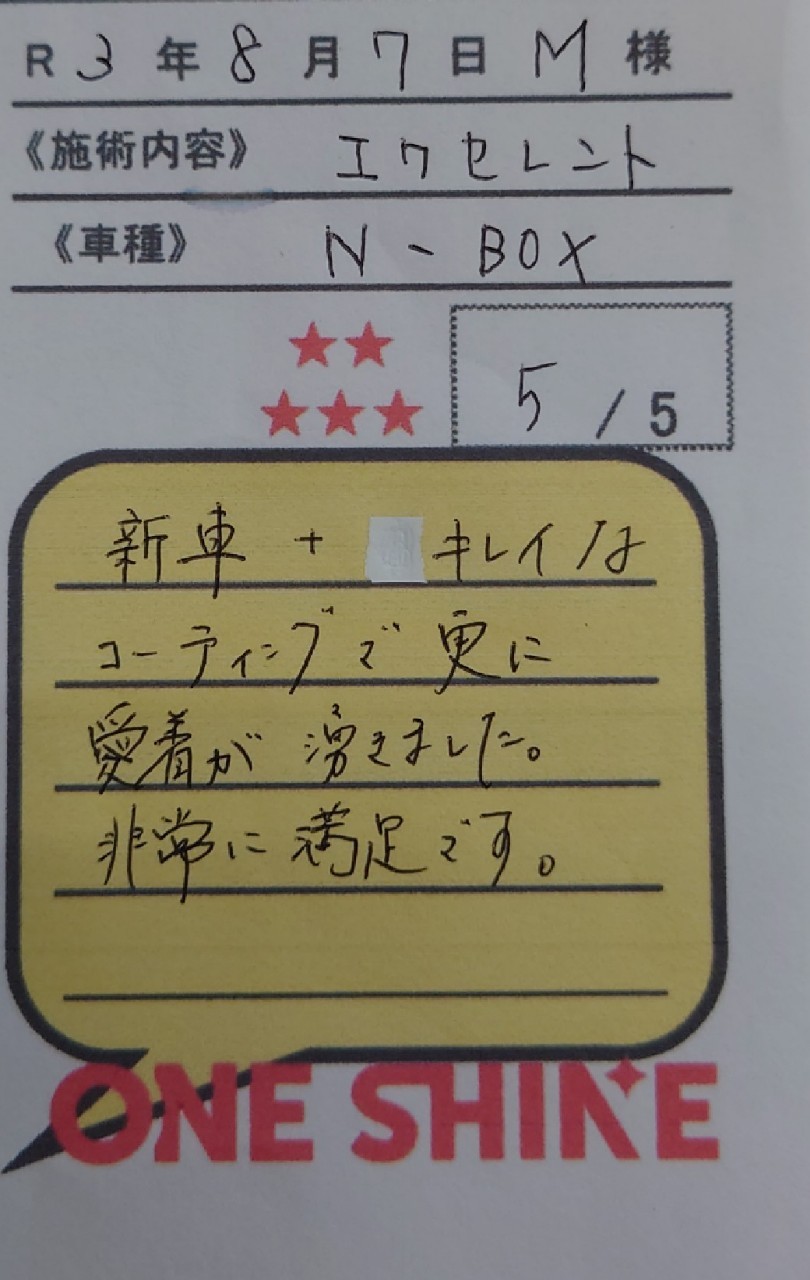 R 3 年 8 月 7 日 M 様
《施術内容》 エクセレント
《車種》 N-BOX
★★
★★★ 5 / 5
新車 + キレイな
コーティングで更に
愛着が湧きました。
非常に満足です。
ONE SHINE